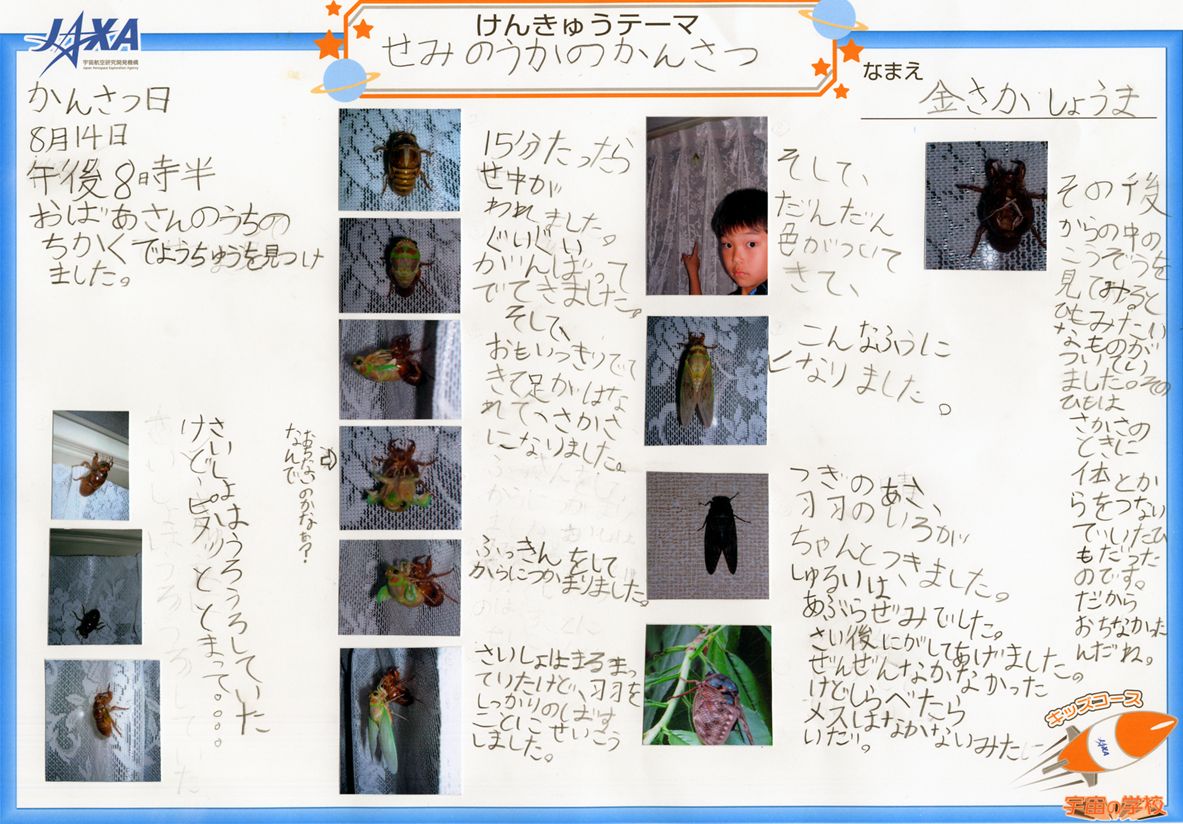 JAXA
宇宙航空研究開発機構
Japan Aerospace Exploration Agency
けんきゅうテーマ
せみのうかのかんさつ
なまえ
金さか しょうま
かんさつ日
8月14日
午後8時半
おばあさんのうちの
ちかくでようちゅうを見つけ
ました。
さいしょはうろうろしていた
けど、ピタッととまって。。。。
おちないのかなぁ?
なんで
15分たったら
せ中が
われました。
ぐいぐい
がんばって
でてきました。
そして、
おもいっきりでて
きて足がはな
れて、さかさ
になりました。
ふっきんをして
からにつかまりました。
さいしょはまるまっ
ていたけど、羽を
しっかりのばす
ことにせいこう
しました。
そして、
だんだん
色がついて
きて、
こんなふうに
なりました。
つぎのあさ、
羽のいろが
ちゃんとつきました。
しゅるいは、
あぶらぜみでした。
さい後にがしてあげました。
ぜんぜんなかなかった
けどしらべたら
メスはなかないみたい
いだ。
その後
からの中の
こうぞうを
見てみると
ひもみたい
なものが
ついてい
ました。その
ひもは
さかさの
ときに
体とか
らをつない
でいたひ
もだった
のです。
だから
おちなかった
んだね。
キッズコース
JAXA
宇宙の学校